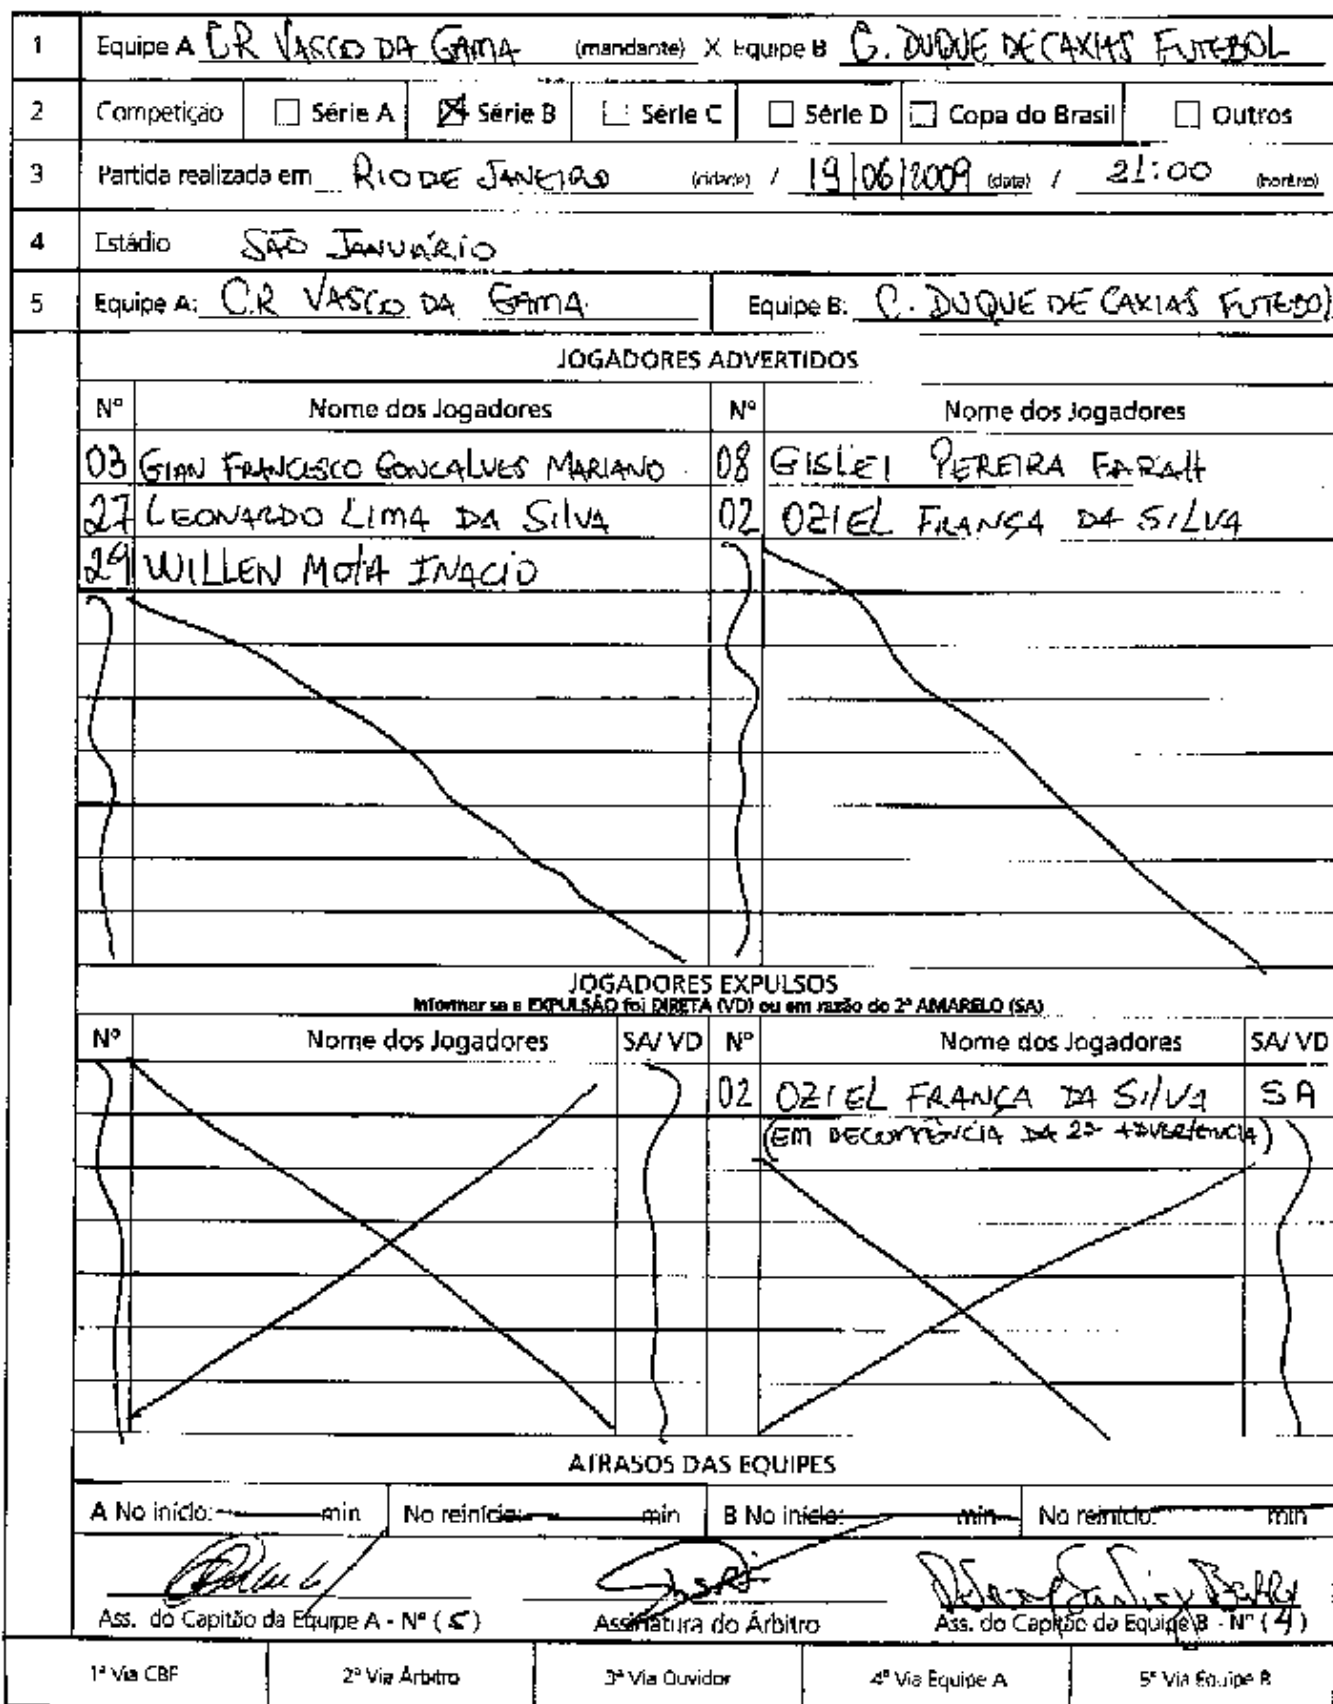 1 Equipe A CR VASCO DA GAMA (mandante) X Equipe B C. DUQUE DE CAXIAS FUTEBOL
2 Competição Série A Série B Série C Série D Copa do Brasil Outros
3 Partida realizada em RIO DE JANEIRO (cidade) / 19/06/2009 (data) / 21:00 (horário)
4 Estádio SÃO JANUÁRIO
5 Equipe A: C.R VASCO DA GAMA Equipe B: C. DUQUE DE CAXIAS FUTEBOL
JOGADORES ADVERTIDOS
Nº Nome dos Jogadores Nº Nome dos Jogadores
03 GIAN FRANCISCO GONCALVES MARIANO 08 GISLEI PEREIRA FARAH
27 LEONARDO LIMA DA SILVA 02 OZIEL FRANÇA DA SILVA
29 WILLEN MOTA INACIO
JOGADORES EXPULSOS
Informar se a EXPULSÃO foi DIRETA (VD) ou em razão do 2º AMARELO (SA)
Nº Nome dos Jogadores SA/ VD Nº Nome dos Jogadores SA/ VD
02 OZIEL FRANÇA DA SILVA SA
(EM DECORRÊNCIA DA 2ª ADVERTENCIA)
ATRASOS DAS EQUIPES
A No início: min No reinício: min B No início: min No reinício: min
Ass. do Capitão da Equipe A - Nº (5) Assinatura do Árbitro Ass. do Capitão da Equipe B - Nº (4)
1ª Via CBF 2ª Via Árbitro 3ª Via Ouvidor 4ª Via Equipe A 5ª Via Equipe B